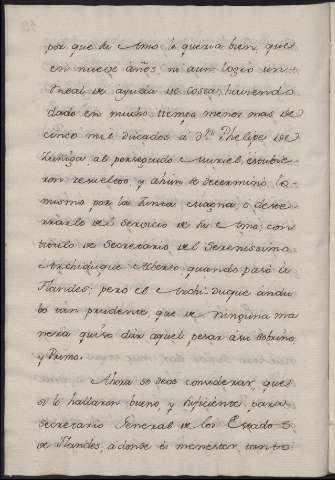 por que su Amo le queria bien, que
en nueve años ni aun logró un
Real de ayuda de Costa, haviendo
dado en mucho tiempo menor mas de
cinco mil ducados á Dn. Phelipe de
Zuñiga, al perseguido Curiel, estubie
ron resueltos, y ahun se determinó lo
mismo por la Junta Magna, ó deste
rrarle del servicio de su Amo, con
titulo de Secretario, del Serenissimo
Archiduque Alberto quando pasó á
Flandes; pero el Archiduque andu
bo tan prudente que de ninguna ma
nera quiso dar aquel pesar á su Sobrino,
y Primo.
Ahora se debe considerar, que
si lo hallaron bueno, y suficiente para
Secretario General de los Estados
de Flandes, á donde es menester tanta